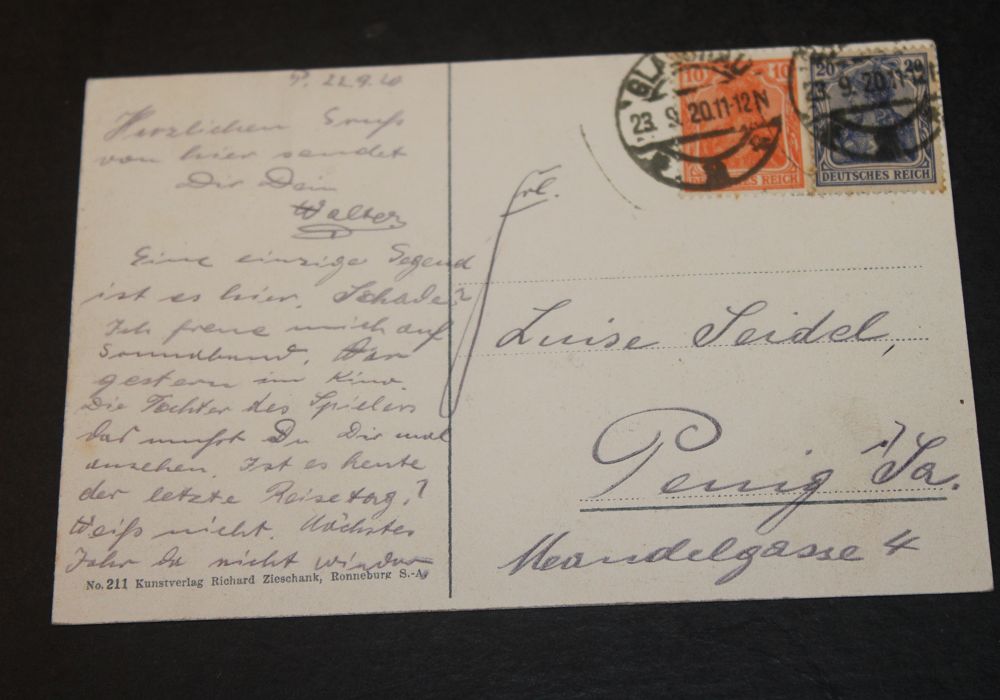 22.9.20
Herzlichen Gruß
von hier sendet
Dir Dein
Walter
Eine einzige Gegend
ist es hier. Schade?
Ich freue mich auf
Sonnabend. War
gestern im Kino.
Die Tochter des Spielers
das mußt Du Dir mal
ansehen. Ist es heute
der letzte Reisetag?
Weiß nicht. Nächstes
Jahr da nicht wieder
No. 211 Kunstverlag Richard Zieschank, Ronneburg S.-A.
GLAUCHAU
23. 9. 20. 11-12 N
10 10
DEUTSCHES REICH
23 9. 20. 11-12
20 20
DEUTSCHES REICH
Frl.
Luise Seidel,
Penig i/Sa.
Mandelgasse 4